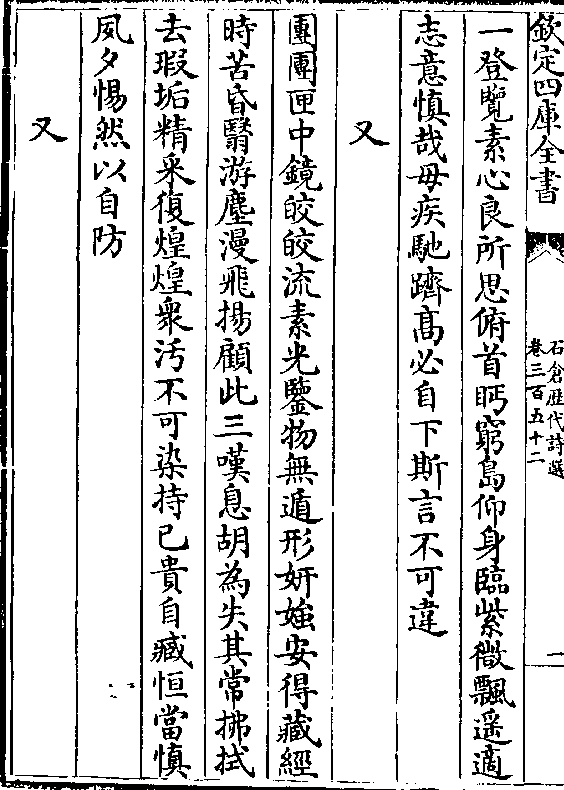 欽定四庫全書
石倉歷代詩選
卷三百五十二
一
一登覽素心良所思俯首眄窮島仰身臨紫微飄遥適
志意慎哉毋疾馳躋髙必自下斯言不可違
又
團團匣中鏡皎皎流素光鑒物無遁形妍媸安得藏經
時苦昏翳游塵漫飛揚顧此三嘆息胡為失其常拂拭
去瑕垢精采復煌煌衆汚不可染持己貴自臧恒當慎
夙夕惕然以自防
又